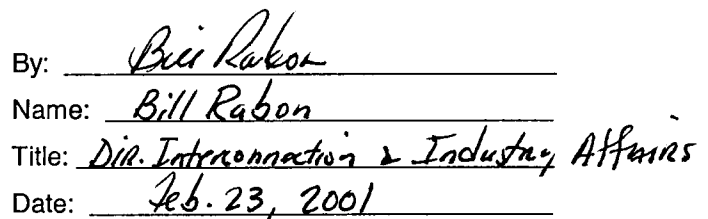 By: Bill Rabon
Name: Bill Rabon
Title: Dir. Interconnection & Industry Affairs
Date: Feb. 23, 2001